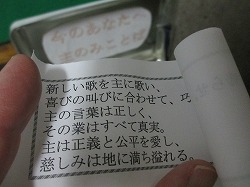 今のあなたへ
主のみことば
新しい歌を主に歌い、
喜びの叫びに合わせて、巧
主の言葉は正しく、
その業はすべて真実。
主は正義と公平を愛し、
慈しみは地に満ち溢れる。